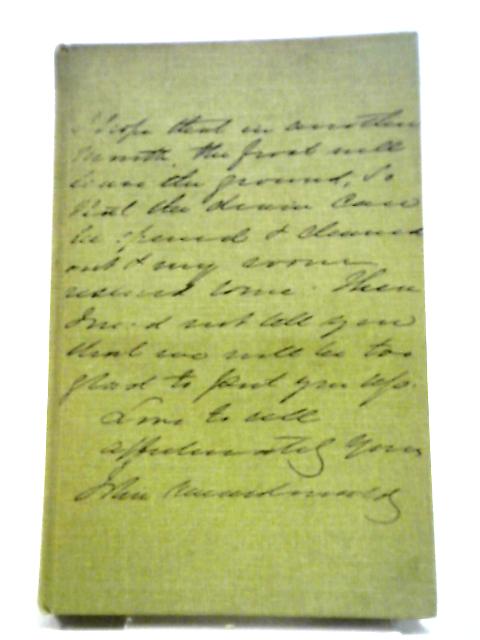 I hope that in another
month, the frost will
leave the ground, so
that the drain can
be opened & cleaned
out & my room
rescued some. Then
I need not tell you
that we will be too
glad to put you up.
Love to all
affectionately yours
John